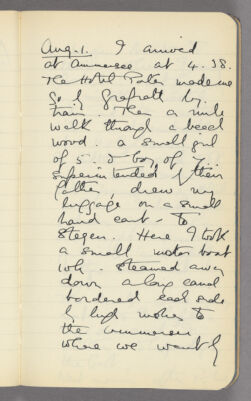 Aug. 1. I arrived
at Ammersee at 4.38.
The Hotel Porter made me
go by Grafrath by
train. Then a mile
walk through a beech
wood. a small girl
of 5. & boy of 7.
superintended by their
father, drew my
luggage on a small
hand cart - to
Stegen. Here I took
a small motor boat
wh. steamed away
down a long canal
bordered each side
by high rushes to
the Ammersee
where we went by